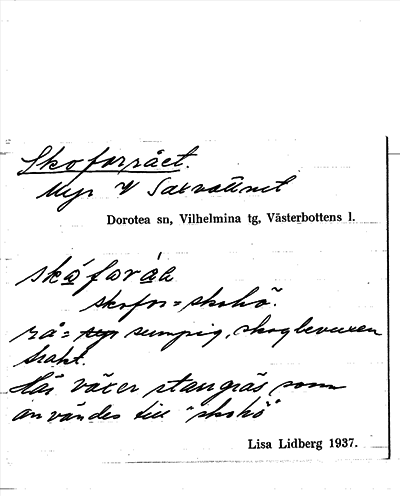 Skoforrået.
Myr V Saxvattnet
Dorotea sn, Vilhelmina tg, Västerbottens l.
skå̀foråe
skofor = skohö.
rå = sumpig, skogbevuxen
trakt.
Här växer stargräs som
användes till "skohö"
Lisa Lidberg 1937.